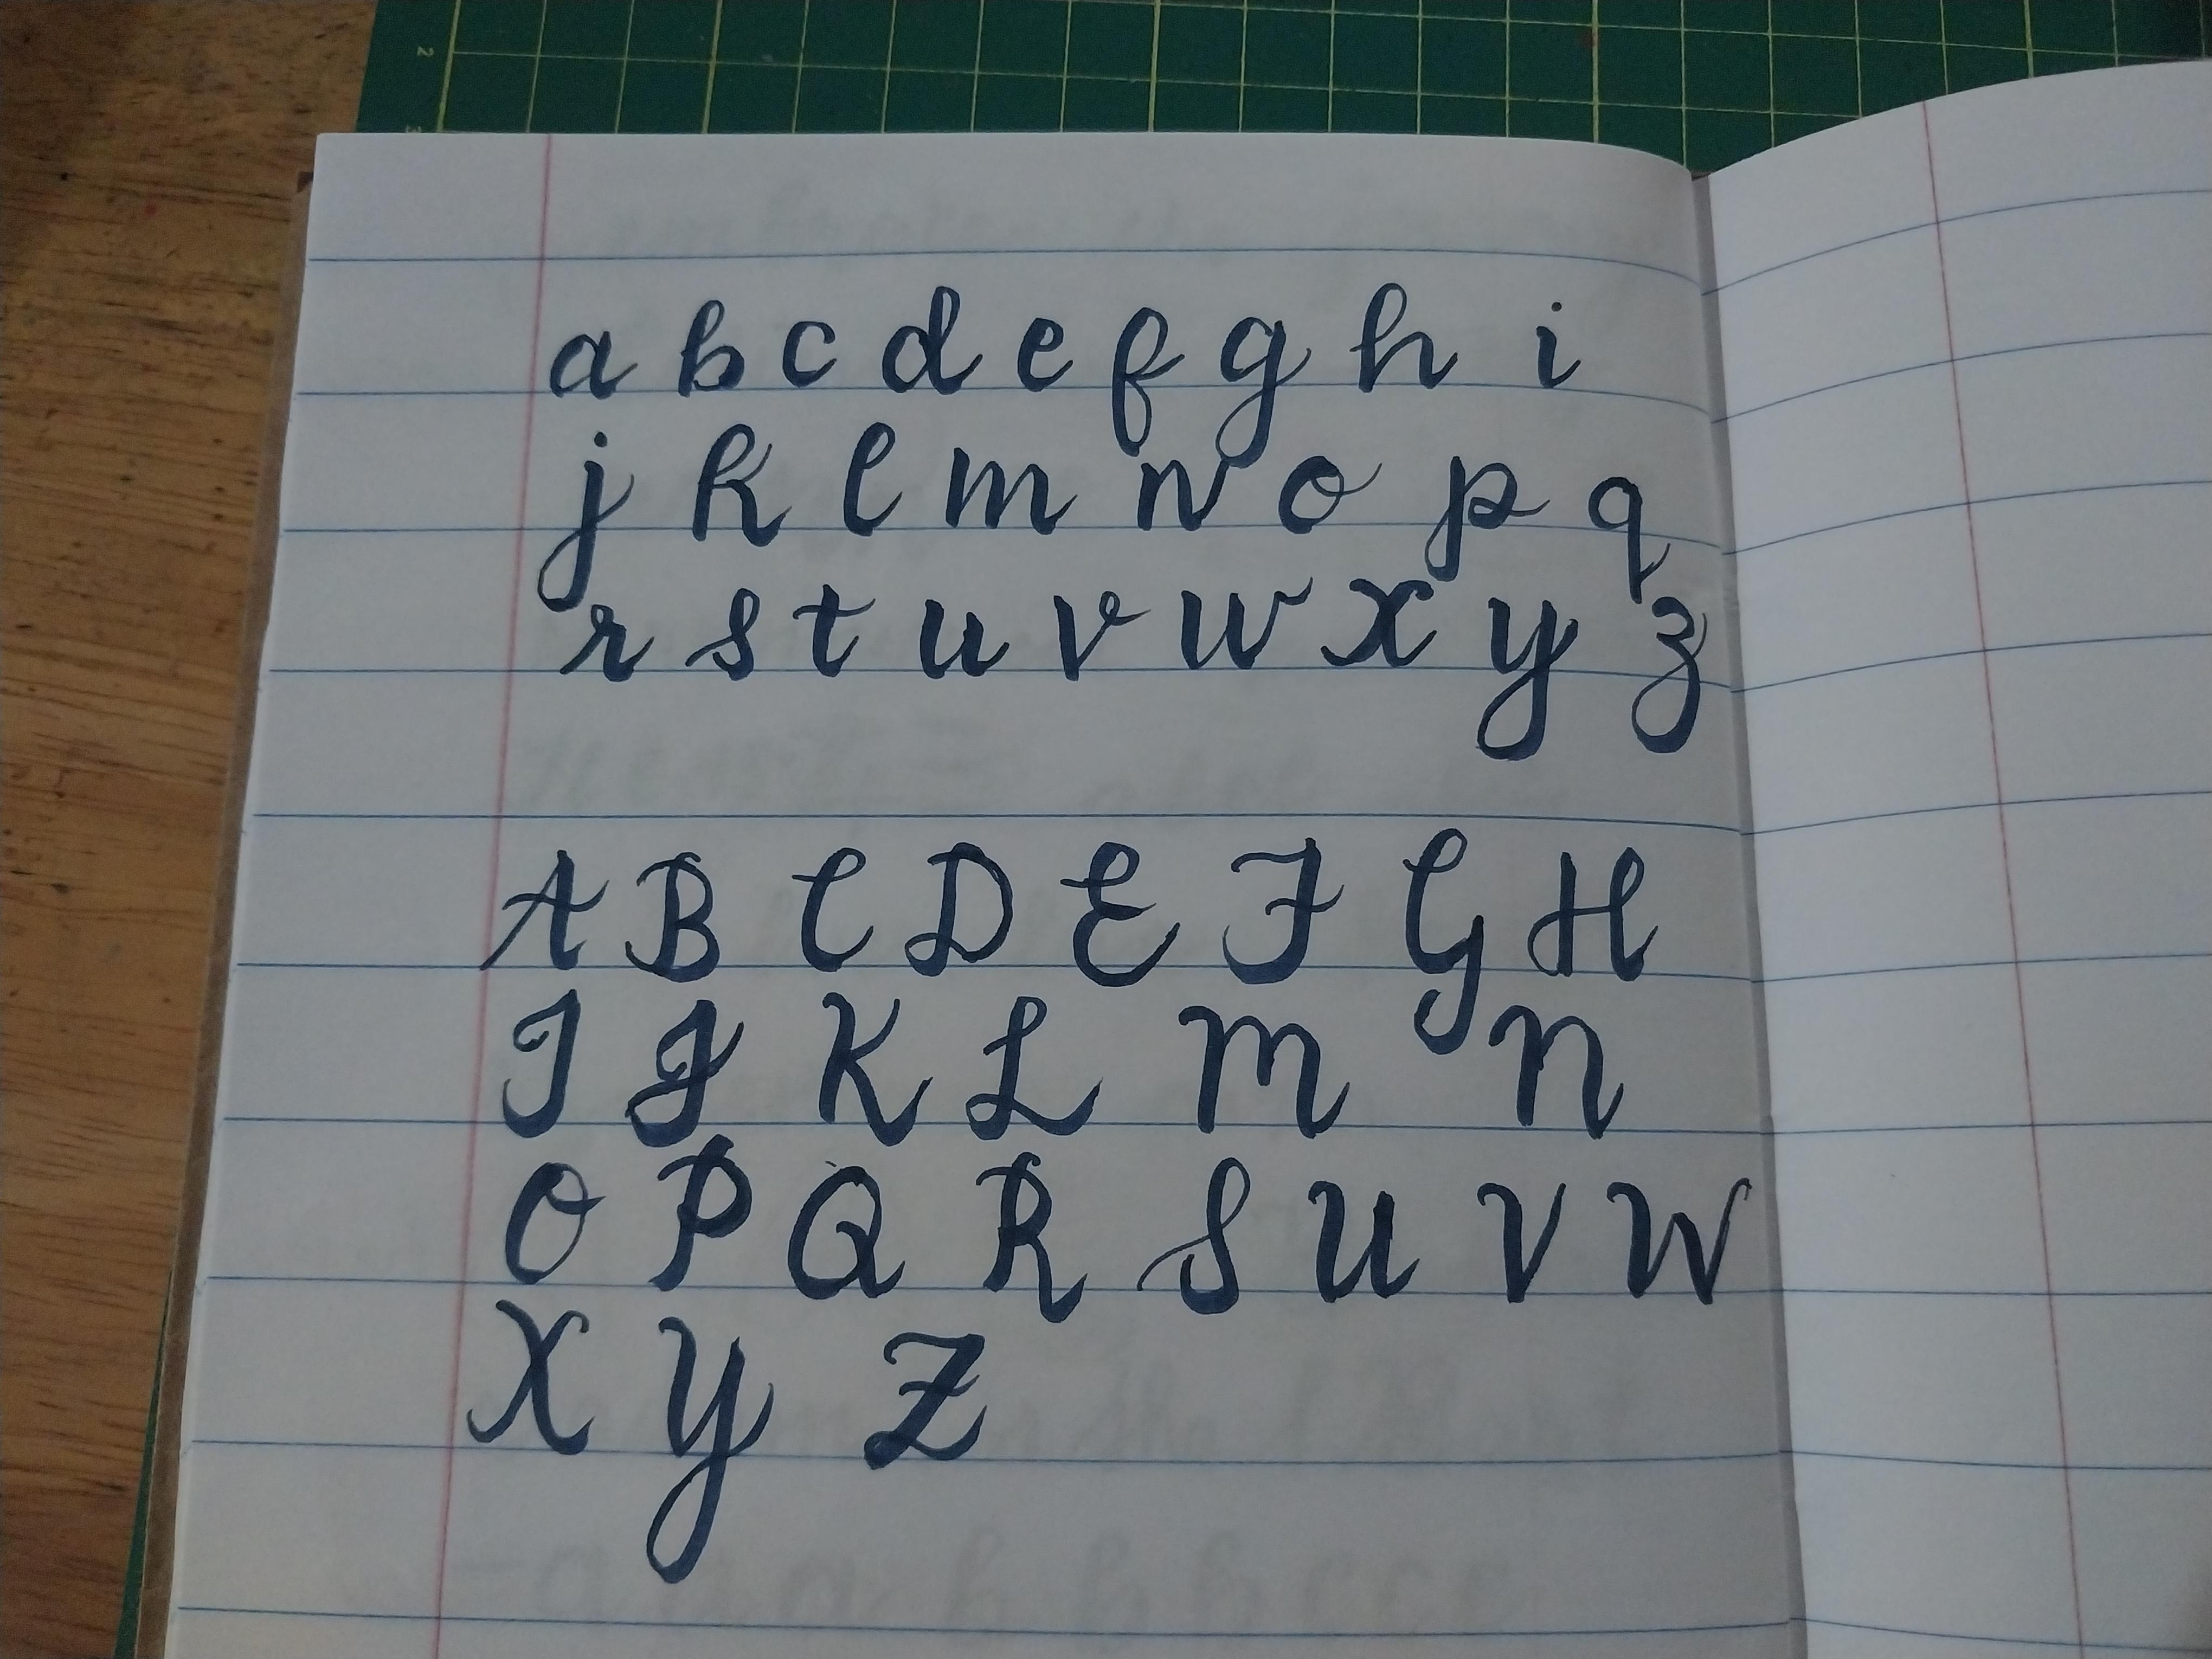 a b c d e f g h i
j k l m n o p q
r s t u v w x y z
A B C D E F G H
I J K L M N
O P Q R S U V W
X Y Z